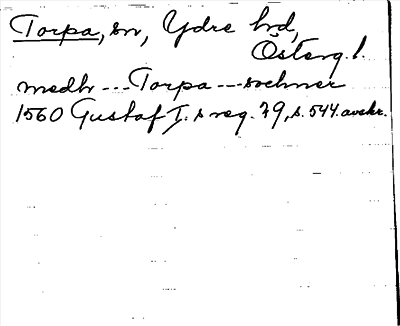 Torpa, sn, Ydre hd,
Österg. l.
medh --- Torpa --- sochner
1560 Gustaf I:s reg. 29, s. 544. avskr.